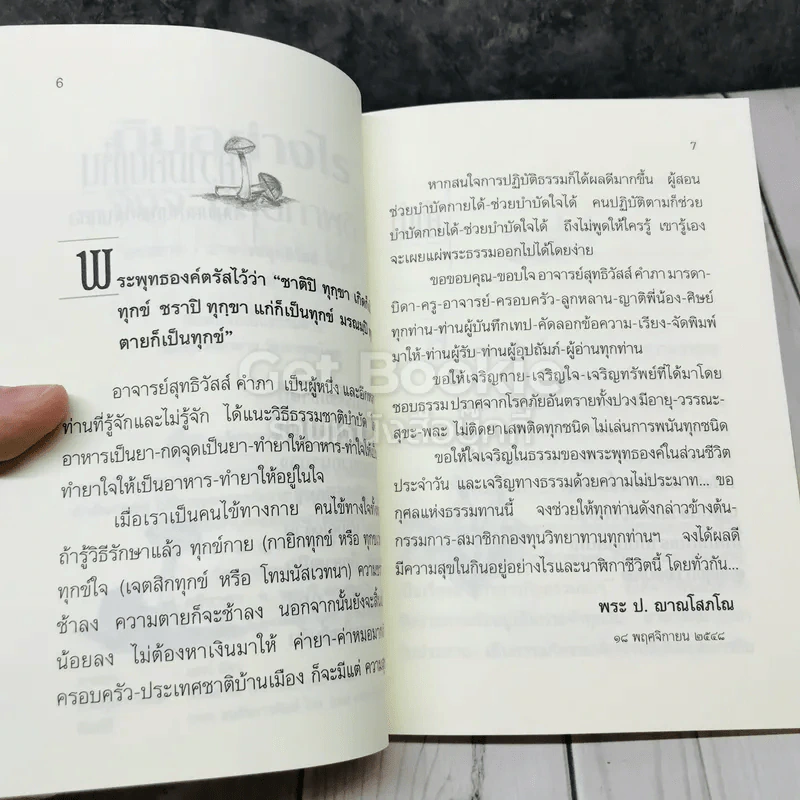 6
พระพุทธองค์ตรัสไว้ว่า “ชาติปิ ทุกฺขา เกิดก็
ทุกข์ ชราปิ ทุกฺขา แก่ก็เป็นทุกข์ มรณมฺปิ
ตายก็เป็นทุกข์”
อาจารย์สุทธิวัสส์ คำภา เป็นผู้หนึ่ง และอีก
ท่านที่รู้จักและไม่รู้จัก ได้แนะวิธีธรรมชาติบำบัด
อาหารเป็นยา-กดจุดเป็นยา-ทำยาให้อาหาร-ทำใจให้
ทำยาใจให้เป็นอาหาร-ทำยาให้อยู่ในใจ
เมื่อเราเป็นคนไข้ทางกาย คนไข้ทางใจ
ถ้ารู้วิธีรักษาแล้ว ทุกข์กาย (กายิกทุกข์ หรือ
ทุกข์ใจ (เจตสิกทุกข์ หรือ โทมนัสเวทนา)
ช้าลง ความตายก็จะช้าลง นอกจากนั้นยังจะ
น้อยลง ไม่ต้องหาเงินมาให้ ค่ายา-ค่าหมอ
ครอบครัว-ประเทศชาติบ้านเมือง ก็จะมีแต่
7
หากสนใจการปฏิบัติธรรมก็ได้ผลดีมากขึ้น ผู้สอน
ช่วยบำบัดกายได้-ช่วยบำบัดใจได้ คนปฏิบัติตามก็ช่วย
บำบัดกายได้-ช่วยบำบัดใจได้ ถึงไม่พูดให้ใครรู้ เขารู้เอง
จะเผยแผ่พระธรรมออกไปได้โดยง่าย
ขอขอบคุณ-ขอบใจ อาจารย์สุทธิวัสส์ คำภา มารดา-
บิดา-ครู-อาจารย์-ครอบครัว-ลูกหลาน-ญาติพี่น้อง-ศิษย์
ทุกท่าน-ท่านผู้บันทึกเทป-คัดลอกข้อความ-เรียง-จัดพิมพ์
มาให้-ท่านผู้รับ-ท่านผู้อุปถัมภ์-ผู้อ่านทุกท่าน
ขอให้เจริญกาย-เจริญใจ-เจริญทรัพย์ที่ได้มาโดย
ชอบธรรม ปราศจากโรคภัยอันตรายทั้งปวง มีอายุ-วรรณะ-
สุขะ-พละ ไม่ติดยาเสพติดทุกชนิด ไม่เล่นการพนันทุกชนิด
ขอให้ใจเจริญในธรรมของพระพุทธองค์ในส่วนชีวิต
ประจำวัน และเจริญทางธรรมด้วยความไม่ประมาท... ขอ
กุศลแห่งธรรมทานนี้ จงช่วยให้ทุกท่านดังกล่าวข้างต้น-
กรรมการ-สมาชิกกองทุนวิทยาทานทุกท่านฯ จงได้ผลดี
มีความสุขในกินอยู่อย่างไรและนาฬิกาชีวิตนี้ โดยทั่วกัน...
พระ ป. ฌาณโสภโณ
๑๘ พฤศจิกายน ๒๕๔๘